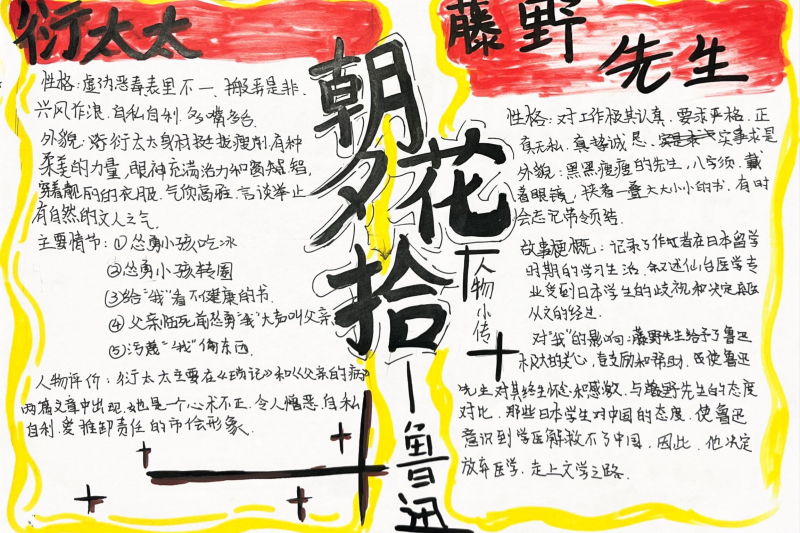 衍太太
性格：虚伪恶毒表里不一、搬弄是非、
兴风作浪、自私自利、多嘴多舌.
外貌：衍太太身材
柔美的力量，眼神充满活力和
的衣服，气质高雅，言谈举止
有自然的文人之气.
主要情节：①怂勇小孩吃冰
②怂勇小孩转圈
③给“我”看不健康的书.
④父亲临死前怂勇“我”大声叫父亲
⑤污蔑“我”偷东西.
人物评价：衍太太主要在《琐记》和《父亲的病》
两篇文章中出现，她是一个心术不正，令人憎恶，自私
自利，爱推卸责任的市侩形象.
朝
花
夕
拾
人物小传
—鲁迅
藤野
先生
性格：对工作极其认真，要求严格，正
直无私，真挚诚恳，实事求是
外貌：黑黑瘦瘦的先生，八字须，戴
着眼镜，挟着一叠大大小小的书，有时
会忘记带领结.
故事梗概：记录了作者在日本留学
时期的学习生活，叙述仙台医学专
业受到日本学生的歧视和决定弃医
从文的经过.
对“我”的影响：藤野先生给予了鲁迅
极大的关心，鼓励和帮助，
先生对其终生怀念和感激，与藤野先生的态度
对比，那些日本学生对中国的态度，使鲁迅
意识到学医解救不了中国，因此，他决定
放弃医学，走上文学之路.